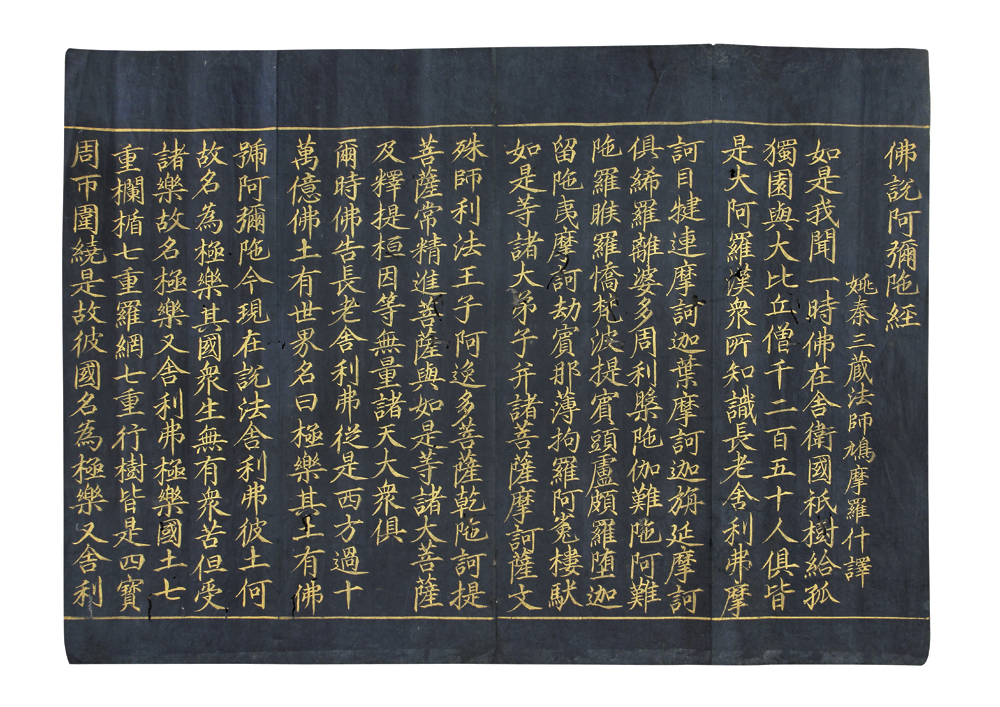 佛說阿彌陁經
姚秦三藏法師鳩摩羅什譯
如是我聞一時佛在舍衛國祇樹給孤
獨園與大比丘僧千二百五十人俱皆
是大阿羅漢衆所知識長老舍利弗摩
訶目犍連摩訶迦葉摩訶迦旃延摩訶
俱絺羅離婆多周利槃陁伽難陁阿難
陁羅睺羅憍梵波提賓頭盧頗羅墮迦
留陁夷摩訶劫賓那薄拘羅阿㝹樓馱
如是等諸大弟子并諸菩薩摩訶薩文
殊師利法王子阿逸多菩薩乾陁訶提
菩薩常精進菩薩與如是等諸大菩薩
及釋提桓因等無量諸天大衆俱
爾時佛告長老舍利弗從是西方過十
萬億佛土有世界名曰極樂其土有佛
號阿彌陁今現在說法舍利弗彼土何
故名為極樂其國衆生無有衆苦但受
諸樂故名極樂又舍利弗極樂國土七
重欄楯七重羅網七重行樹皆是四寶
周帀圍繞是故彼國名為極樂又舍利